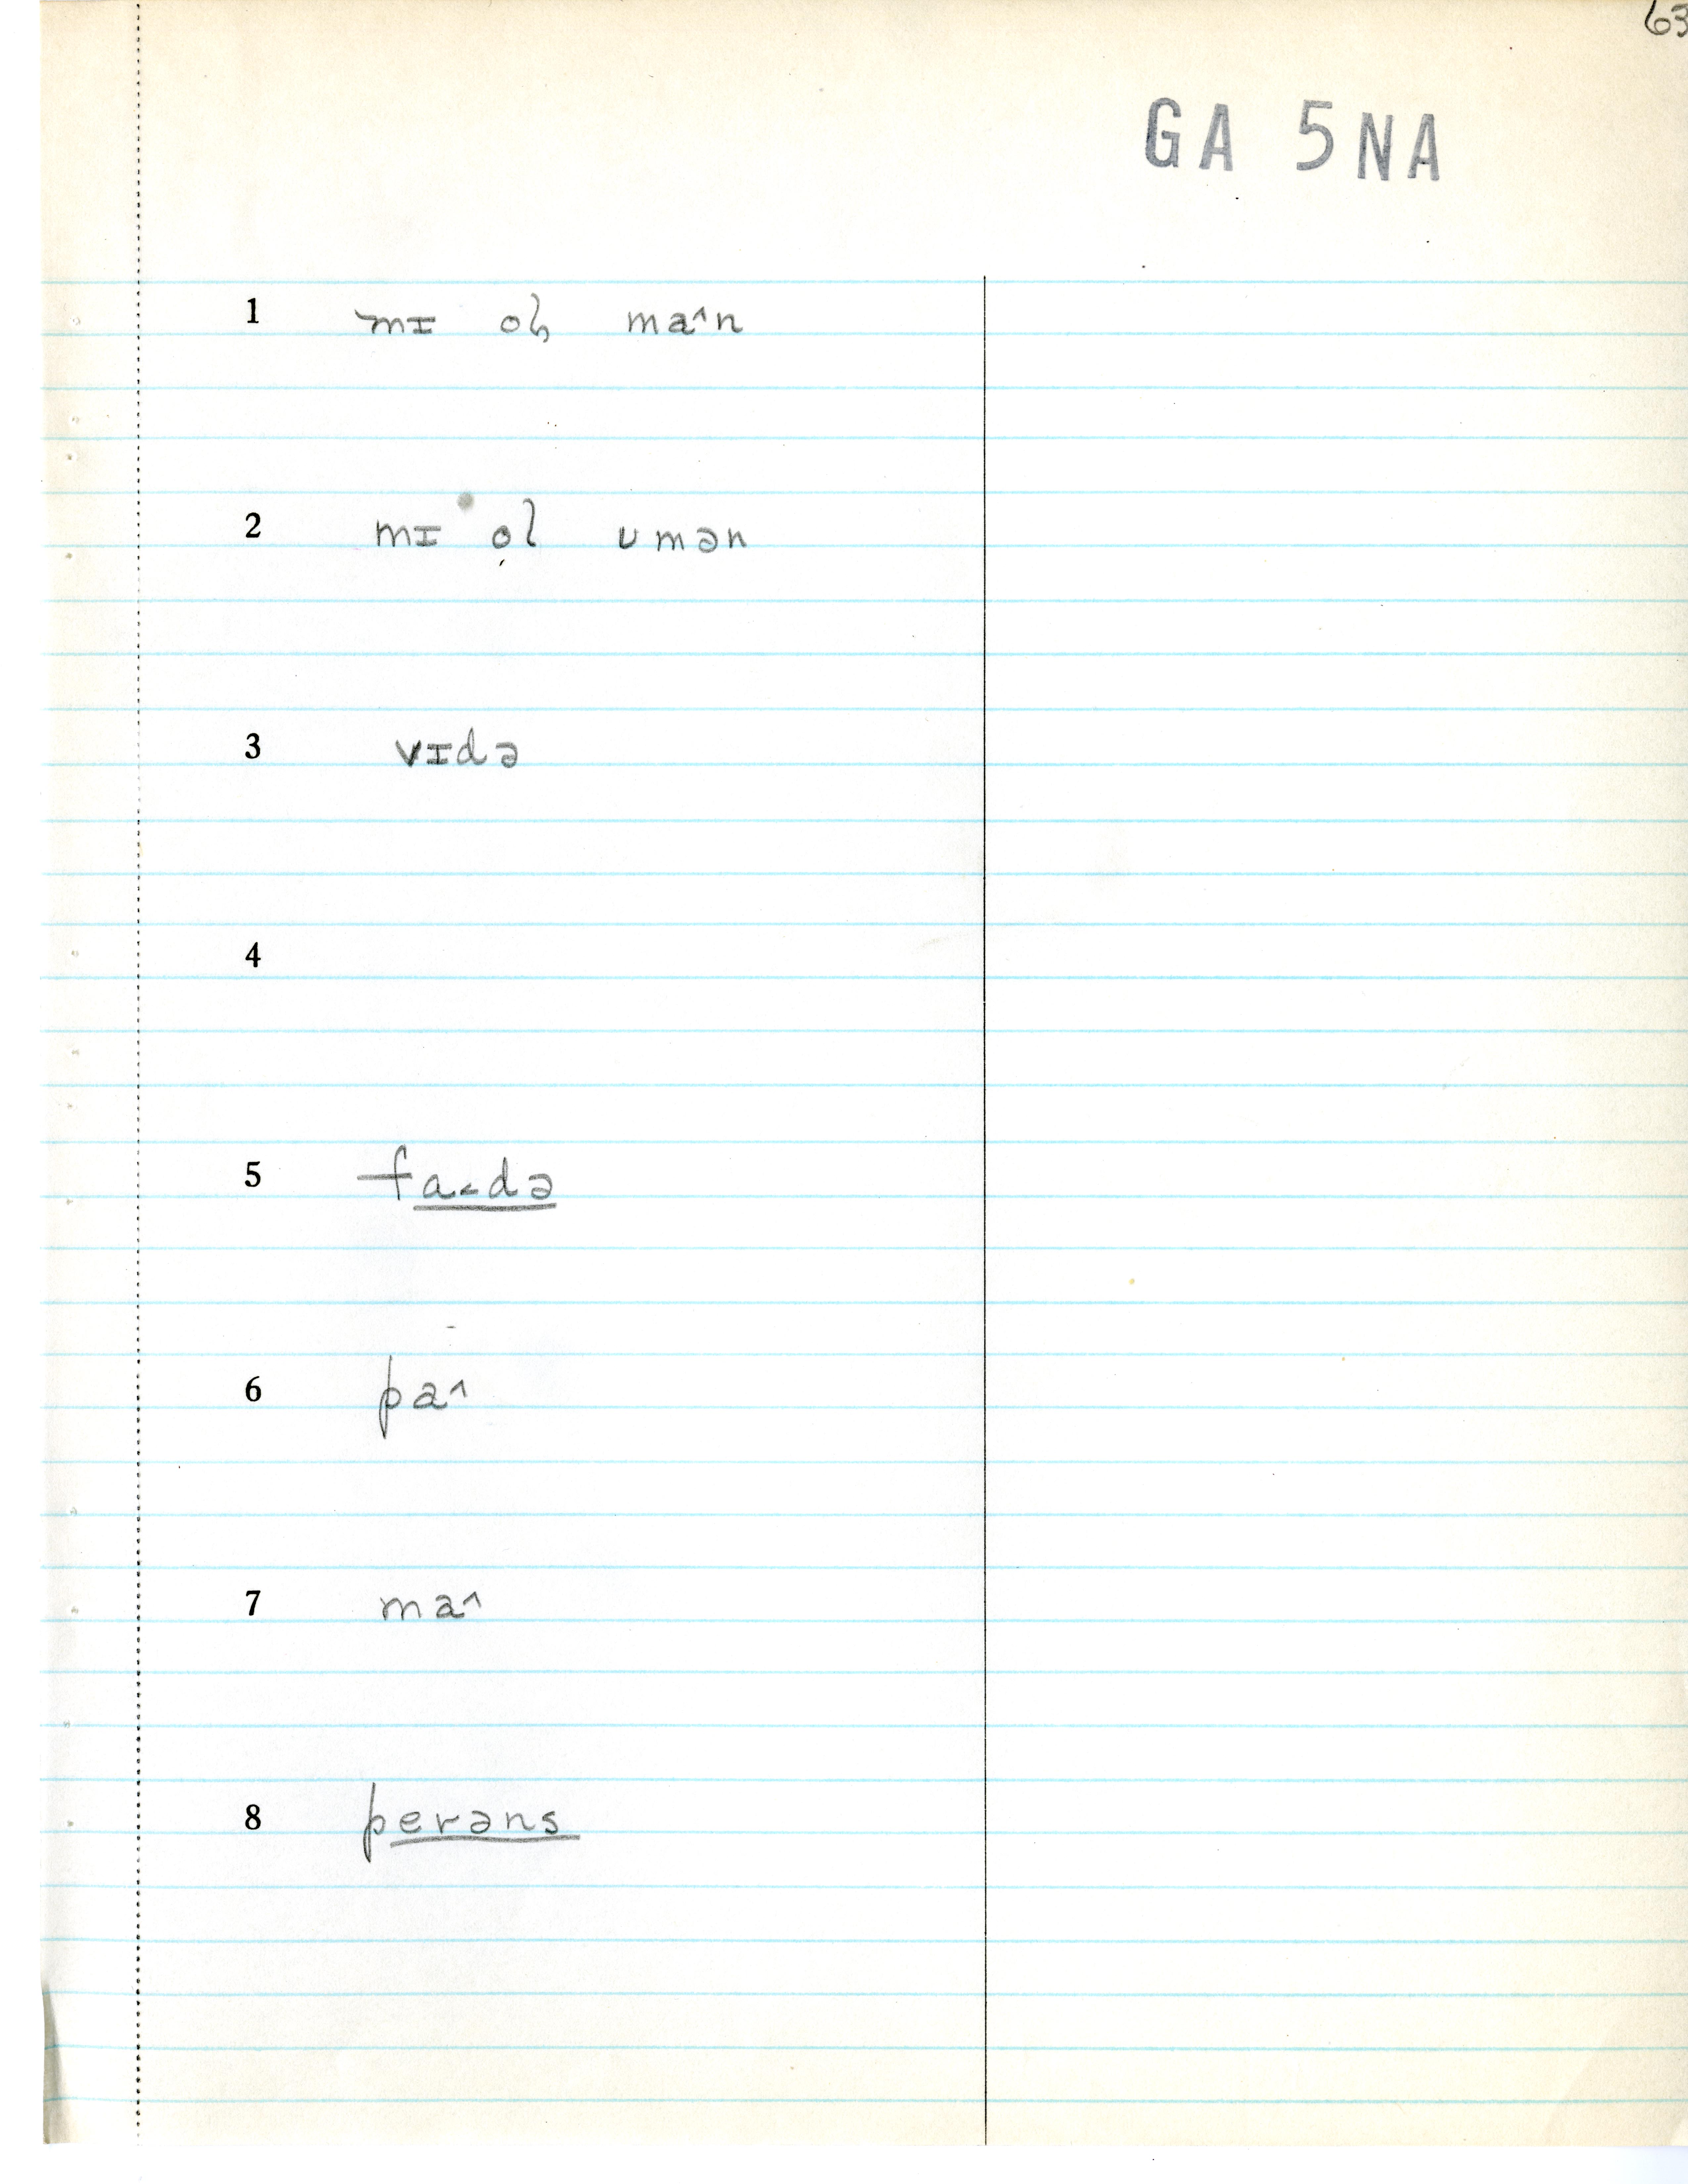 63
GA 5NA
1 mɪ ol̥ ma˄n
2 mɪ ol ʋmən
3 vɪdə
4
5 fa˂də
6 pa˄
7 ma˄
8 perəns